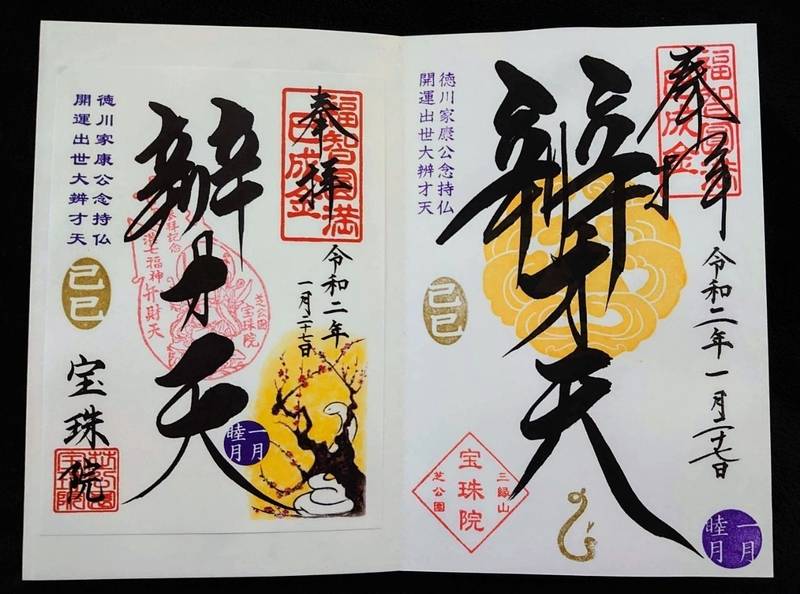 奉拝
福智圓満
巳成金
令和二年一月二十七日
辨才天
徳川家康公念持仏
開運出世大辨才天
己巳
三縁山
宝珠院
芝公園
一月
睦月
奉拝
福智圓満
巳成金
令和二年
一月二十七日
辨才天
参拝記念
港七福神弁財天
芝公園
宝珠院
一月
睦月
徳川家康公念持仏
開運出世大辨才天
己巳
宝珠院